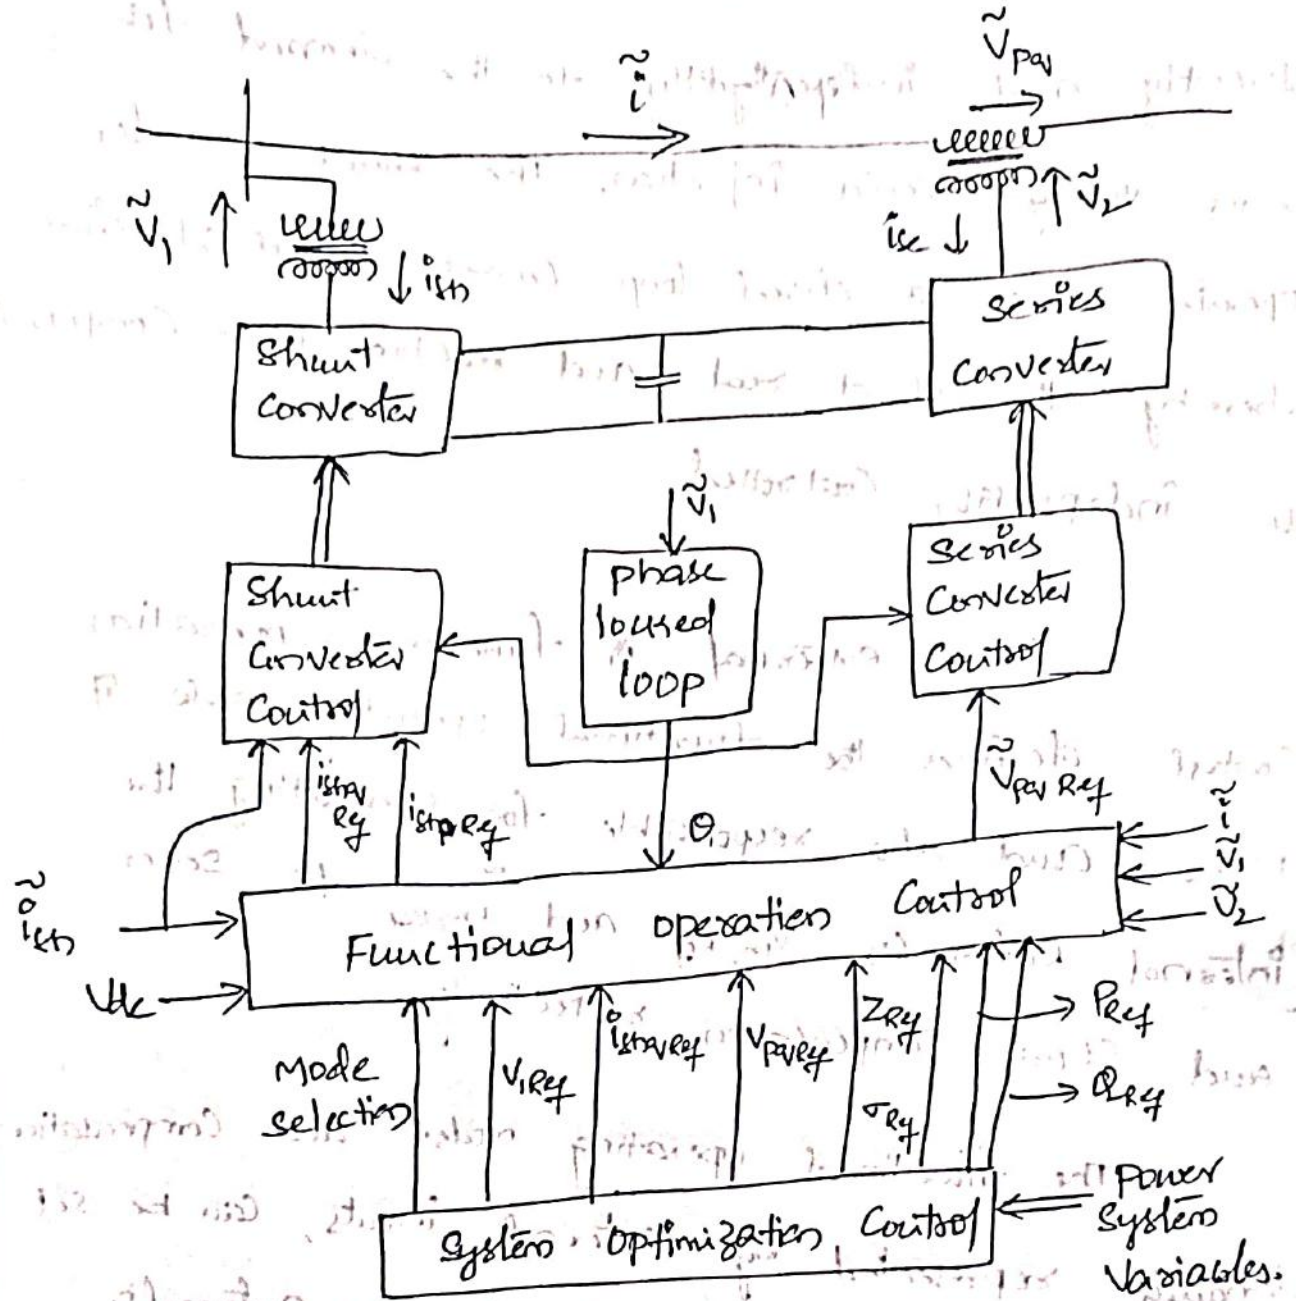 ṽpq
ĩ
ṽ1
ish
isc
ṽ2
Shunt
Converter
Series
Converter
ṽ1
Shunt
Converter
Control
phase
locked
loop
Series
Converter
Control
ishq
Ref
ishpRef
θ
ṽpqRef
ĩ
ṽ1
ṽ2
ĩsh
Vdc
Functional operation Control
Mode
selection
V1Ref
ishqRef
VpqRef
ZRef
σRef
PRef
QRef
System Optimization Control
Power
System
Variables.